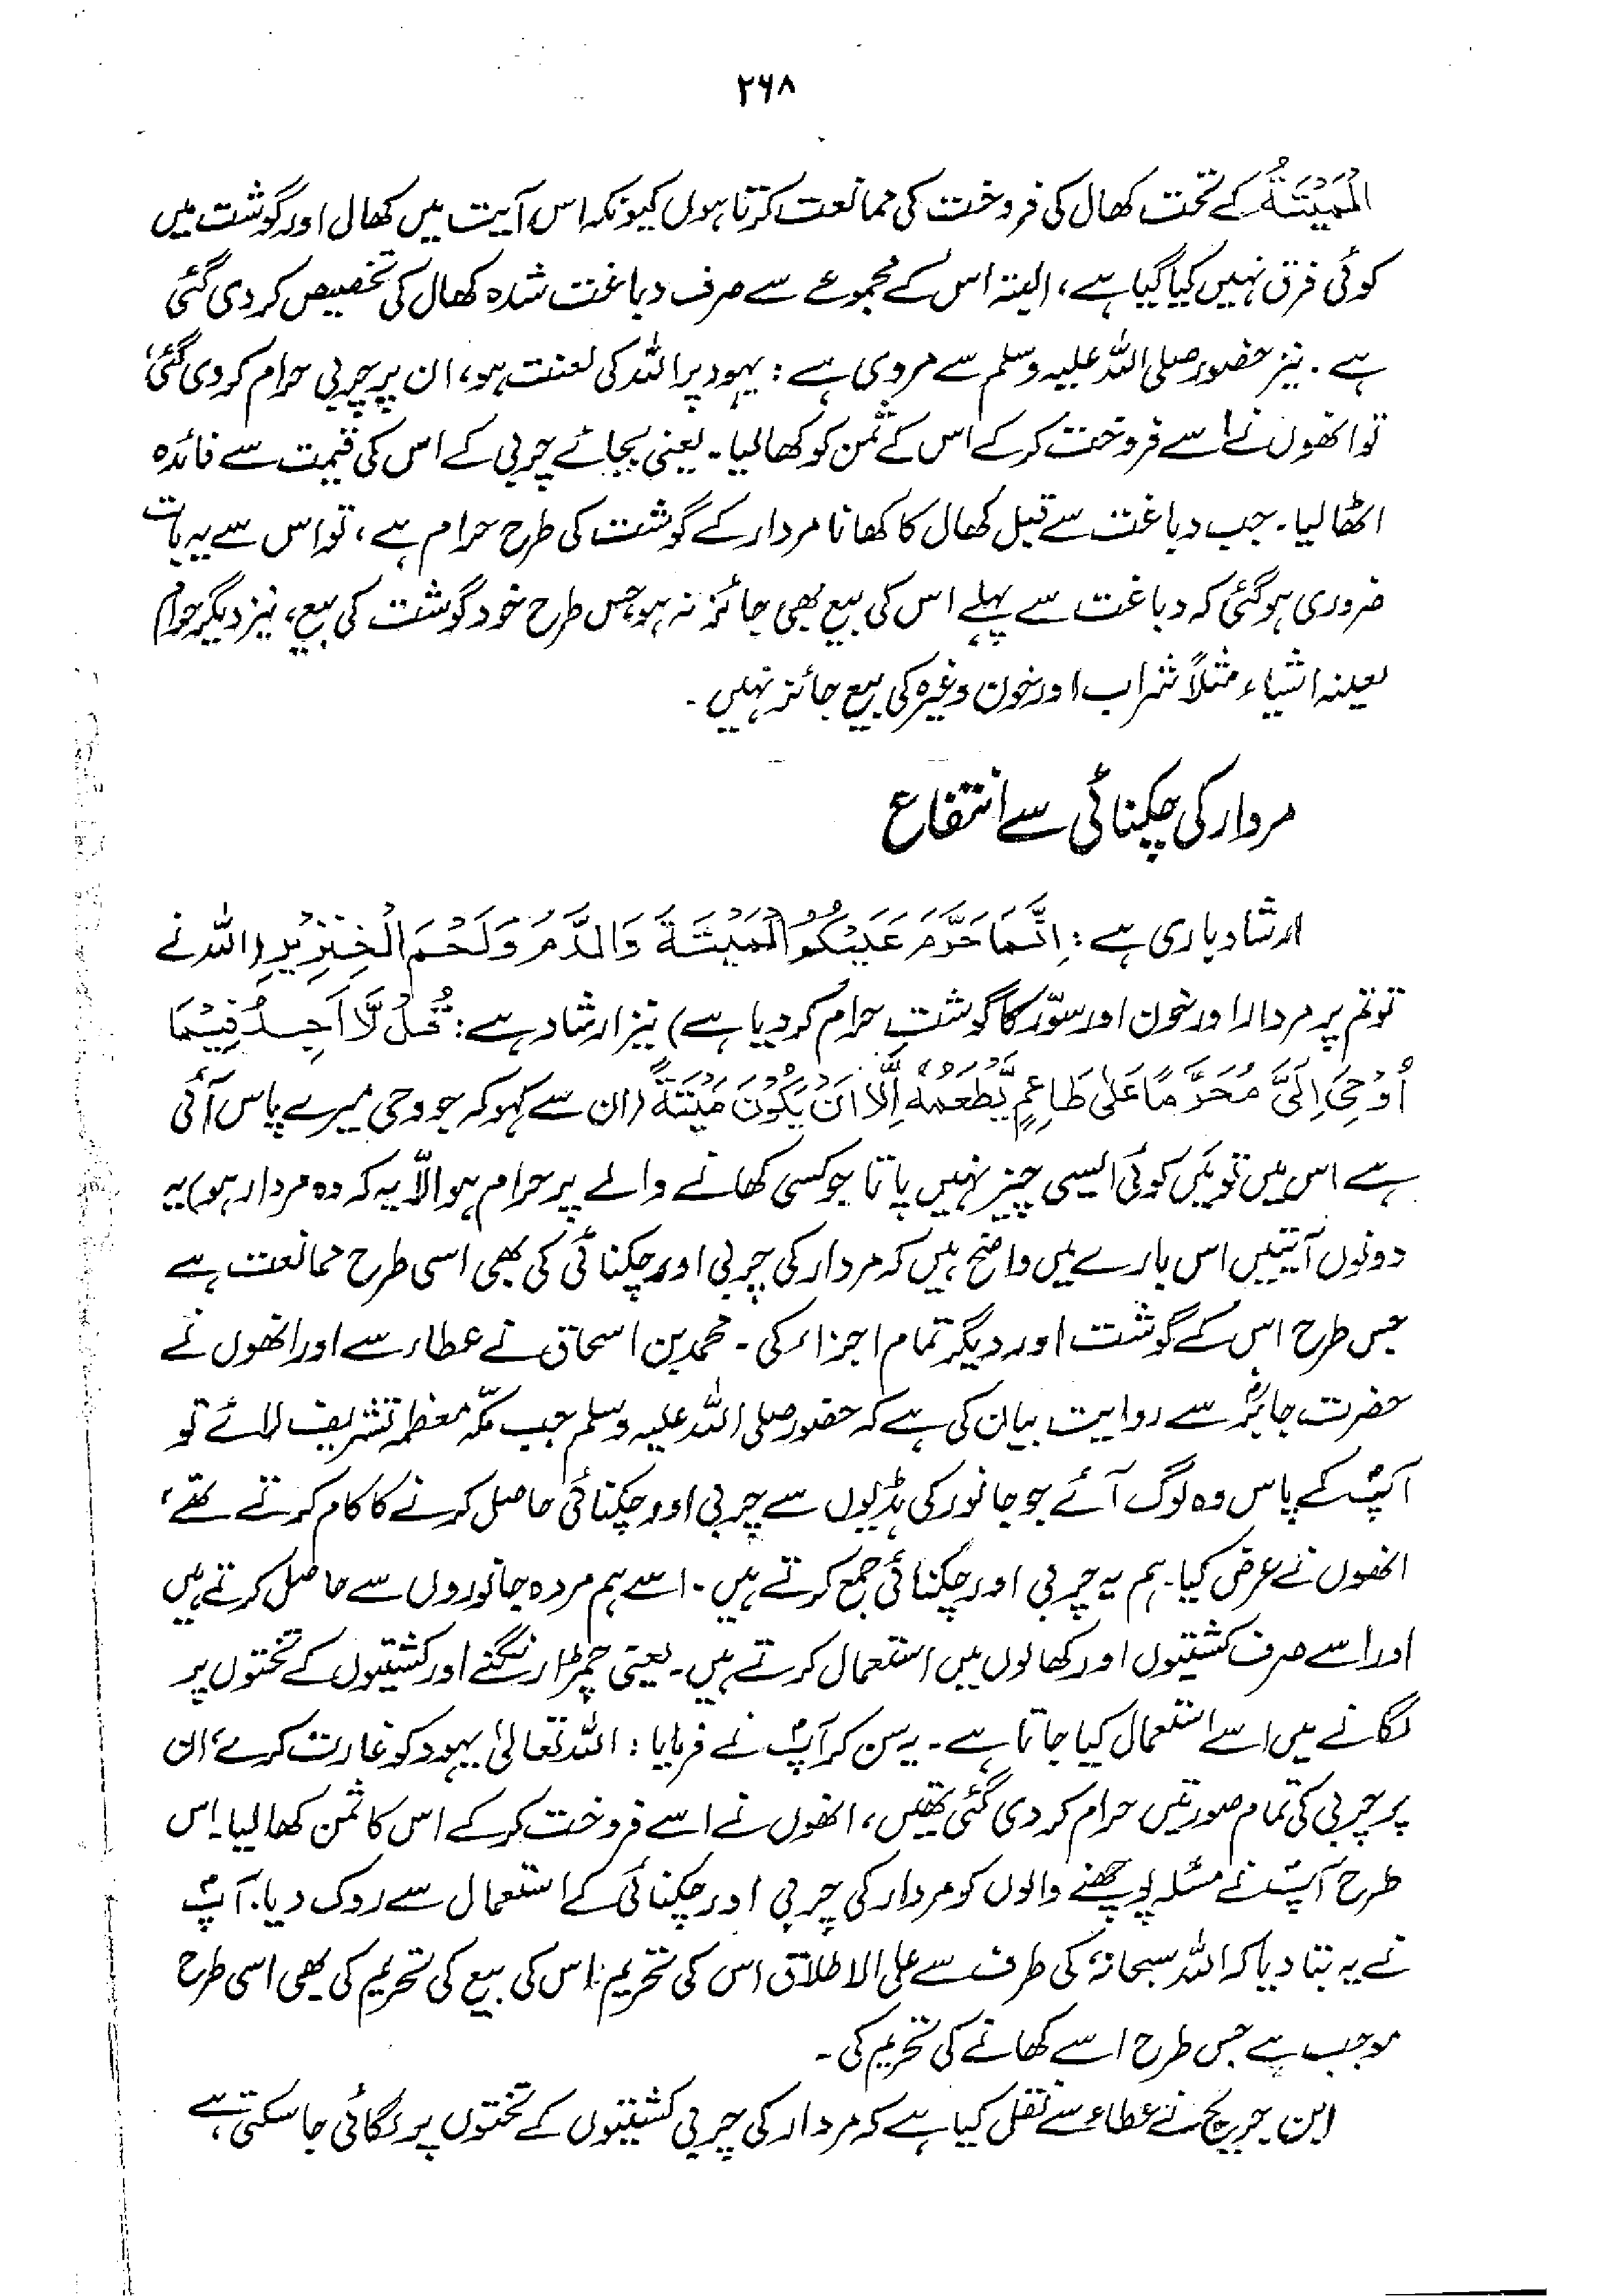 ۲۶۸
الْمَيْتَةُ کے تحت کھال کی فروخت کی ممانعت کرتا ہوں کیونکہ اس آیت میں کھال اور گوشت میں
کوئی فرق نہیں کیا گیا ہے، البتہ اس کے مجموعے سے صرف دباغت شدہ کھال کی تخصیص کر دی گئی
ہے۔ نیز حضور صلی اللہ علیہ وسلم سے مروی ہے: یہود پر اللہ کی لعنت ہو، ان پر چربی حرام کر دی گئی،
تو انھوں نے اسے فروخت کر کے اس کے ثمن کو کھا لیا۔ یعنی بجائے چربی کے اس کی قیمت سے فائدہ
اٹھا لیا۔ جب دباغت سے قبل کھال کا کھانا مردار کے گوشت کی طرح حرام ہے، تو اس سے یہ بات
ضروری ہو گئی کہ دباغت سے پہلے اس کی بیع بھی جائز نہ ہو جس طرح خود گوشت کی بیع، نیز دیگر حرام
بعینہ اشیاء مثلاً شراب اور خون وغیرہ کی بیع جائز نہیں۔
مردار کی چکنائی سے انتفاع
ارشاد باری ہے: اِنَّمَا حَرَّمَ عَلَيْكُمُ الْمَيْتَةَ وَالدَّمَ وَلَحْمَ الْخِنْزِيْرِ (اللہ نے
تو تم پر مردار اور خون اور سوّر کا گوشت حرام کر دیا ہے) نیز ارشاد ہے: قُلْ لَّا اَجِدُ فِيْمَا
اُوْحِىَ اِلَىَّ مُحَرَّمًا عَلٰى طَاعِمٍ يَّطْعَمُهٗ اِلَّا اَنْ يَّكُوْنَ مَيْتَةً (ان سے کہو کہ جو وحی میرے پاس آئی
ہے اس میں تو میں کوئی ایسی چیز نہیں پاتا جو کسی کھانے والے پر حرام ہو الّا یہ کہ وہ مردار ہو) یہ
دونوں آیتیں اس بارے میں واضح ہیں کہ مردار کی چربی اور چکنائی کی بھی اسی طرح ممانعت ہے
جس طرح اس کے گوشت اور دیگر تمام اجزاء کی۔ محمد بن اسحاق نے عطاء سے اور انھوں نے
حضرت جابرؓ سے روایت بیان کی ہے کہ حضور صلی اللہ علیہ وسلم جب مکّہ معظمہ تشریف لائے تو
آپؐ کے پاس وہ لوگ آئے جو جانور کی ہڈیوں سے چربی اور چکنائی حاصل کرنے کا کام کرتے تھے،
انھوں نے عرض کیا۔ ہم یہ چربی اور چکنائی جمع کرتے ہیں۔ اسے ہم مردہ جانوروں سے حاصل کرتے ہیں
اور اسے صرف کشتیوں اور کھالوں میں استعمال کرتے ہیں۔ یعنی چمڑا رنگنے اور کشتیوں کے تختوں پر
لگانے میں اسے استعمال کیا جاتا ہے۔ یہ سن کر آپؐ نے فرمایا: اللہ تعالیٰ یہود کو غارت کرے، ان
پر چربی کی تمام صورتیں حرام کر دی گئی تھیں، انھوں نے اسے فروخت کر کے اس کا ثمن کھا لیا۔ اس
طرح آپؐ نے مسئلہ پوچھنے والوں کو مردار کی چربی اور چکنائی کے استعمال سے روک دیا۔ آپؐ
نے یہ بتا دیا کہ اللہ سبحانہٗ کی طرف سے علی الاطلاق اس کی تحریم، اس کی بیع کی تحریم کی بھی اسی طرح
موجب ہے جس طرح اسے کھانے کی تحریم کی۔
ابن جریج نے عطاء سے نقل کیا ہے کہ مردار کی چربی کشتیوں کے تختوں پر لگائی جا سکتی ہے